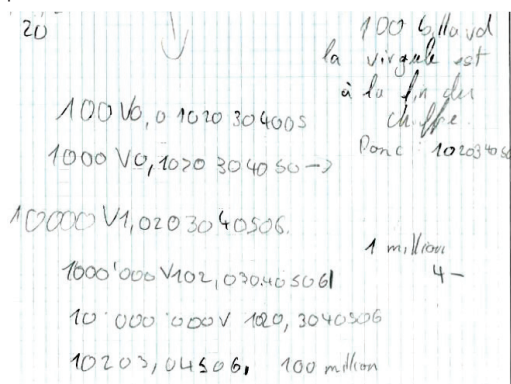 20
100 V0,01020304005
1000 V0,1020304050 →
10000 V1,0203040506.
1000'000 V102,03040506
10'000'000 V 1020,3040506
10203,04506, 100 million
100 billard
la virgule est
à la fin du
chiffre.
Donc: 102034050
1 million
4-